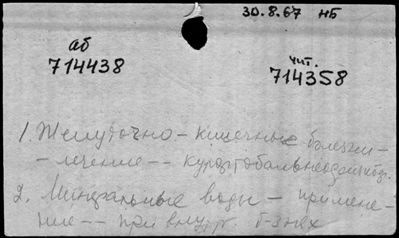 30.8.67 нб
аб
714438
чит.
714358
1. Желудочно-кишечные болезни-
- лечение -- курортобальнео
2. Минеральные воды - примене-
ние -- при внутр. б-знях